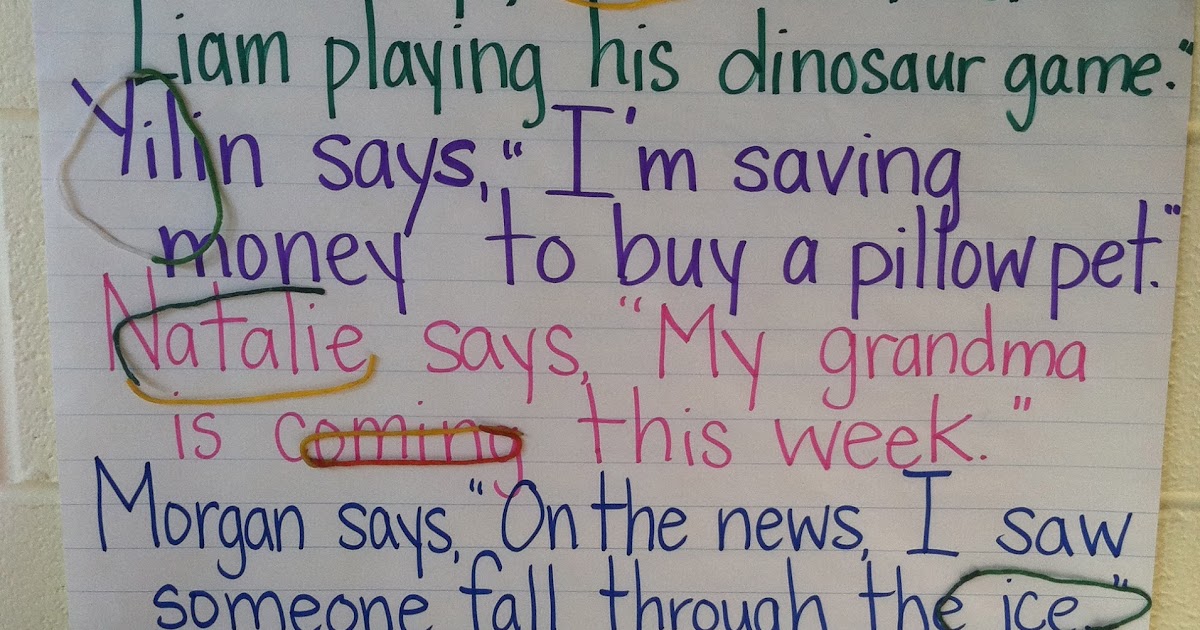 Liam playing his dinosaur game."
Yilin says, "I'm saving
money to buy a pillow pet."
Natalie says, "My grandma
is coming this week."
Morgan says, "On the news, I saw
someone fall through the ice."